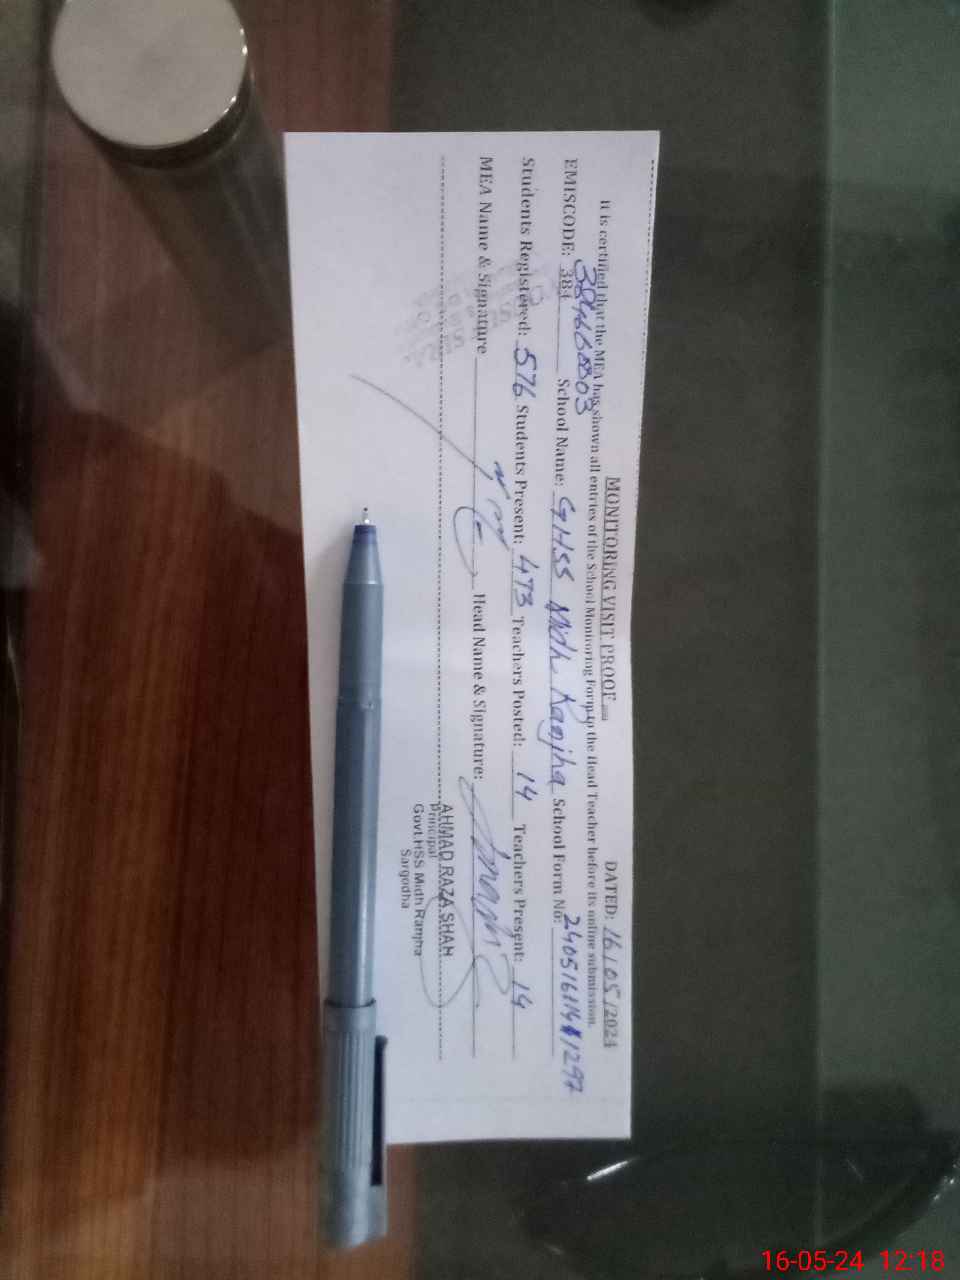 MONITORING VISIT PROOF
DATED: 16/05/2024
It is certified that the MEA has shown all entries of the School Monitoring Form to the Head Teacher before its online submission.
EMISCODE: 384 School Name: GHSS Midh Ranjha School Form No:
Students Registered: 576 Students Present: 473 Teachers Posted: 14 Teachers Present: 14
MEA Name & Signature Head Name & Signature:
AHMAD RAZA SHAH
Principal
Govt.HSS Midh Ranjha
Sargodha
16-05-24 12:18